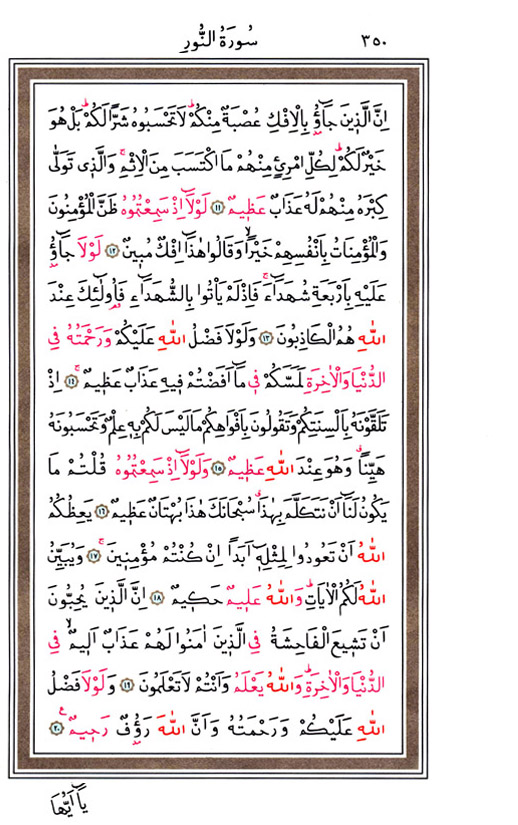 سُورَةُ النُّورِ ٣٥٠
اِنَّ الَّذ۪ينَ جَٓاؤُ۫ بِالْاِفْكِ عُصْبَةٌ مِنْكُمْۜ لَا تَحْسَبُوهُ شَرًّا لَكُمْۜ بَلْ هُوَ
خَيْرٌ لَكُمْۜ لِكُلِّ امْرِئٍ مِنْهُمْ مَا اكْتَسَبَ مِنَ الْاِثْمِۚ وَالَّذ۪ي تَوَلّٰى
كِبْرَهُ مِنْهُمْ لَهُ عَذَابٌ عَظ۪يمٌ ﴿١١﴾ لَوْلَٓا اِذْ سَمِعْتُمُوهُ ظَنَّ الْمُؤْمِنُونَ
وَالْمُؤْمِنَاتُ بِاَنْفُسِهِمْ خَيْرًاۙ وَقَالُوا هٰذَٓا اِفْكٌ مُب۪ينٌ ﴿١٢﴾ لَوْلَا جَٓاؤُ۫
عَلَيْهِ بِاَرْبَعَةِ شُهَدَٓاءَۚ فَاِذْ لَمْ يَأْتُوا بِالشُّهَدَٓاءِ فَاُو۬لٰٓئِكَ عِنْدَ
اللّٰهِ هُمُ الْكَاذِبُونَ ﴿١٣﴾ وَلَوْلَا فَضْلُ اللّٰهِ عَلَيْكُمْ وَرَحْمَتُهُ فِي
الدُّنْيَا وَالْاٰخِرَةِ لَمَسَّكُمْ ف۪ي مَٓا اَفَضْتُمْ ف۪يهِ عَذَابٌ عَظ۪يمٌۚ ﴿١٤﴾ اِذْ
تَلَقَّوْنَهُ بِاَلْسِنَتِكُمْ وَتَقُولُونَ بِاَفْوَاهِكُمْ مَا لَيْسَ لَكُمْ بِه۪ عِلْمٌ وَتَحْسَبُونَهُ
هَيِّنًاۗ وَهُوَ عِنْدَ اللّٰهِ عَظ۪يمٌ ﴿١٥﴾ وَلَوْلَٓا اِذْ سَمِعْتُمُوهُ قُلْتُمْ مَا
يَكُونُ لَنَٓا اَنْ نَتَكَلَّمَ بِهٰذَاۗ سُبْحَانَكَ هٰذَا بُهْتَانٌ عَظ۪يمٌ ﴿١٦﴾ يَعِظُكُمُ
اللّٰهُ اَنْ تَعُودُوا لِمِثْلِه۪ٓ اَبَدًا اِنْ كُنْتُمْ مُؤْمِن۪ينَۚ ﴿١٧﴾ وَيُبَيِّنُ
اللّٰهُ لَكُمُ الْاٰيَاتِۜ وَاللّٰهُ عَل۪يمٌ حَك۪يمٌ ﴿١٨﴾ اِنَّ الَّذ۪ينَ يُحِبُّونَ
اَنْ تَش۪يعَ الْفَاحِشَةُ فِي الَّذ۪ينَ اٰمَنُوا لَهُمْ عَذَابٌ اَل۪يمٌۙ فِي
الدُّنْيَا وَالْاٰخِرَةِۜ وَاللّٰهُ يَعْلَمُ وَاَنْتُمْ لَا تَعْلَمُونَ ﴿١٩﴾ وَلَوْلَا فَضْلُ
اللّٰهِ عَلَيْكُمْ وَرَحْمَتُهُ وَاَنَّ اللّٰهَ رَؤُ۫فٌ رَح۪يمٌ۟ ﴿٢٠﴾
يَٓا اَيُّهَا